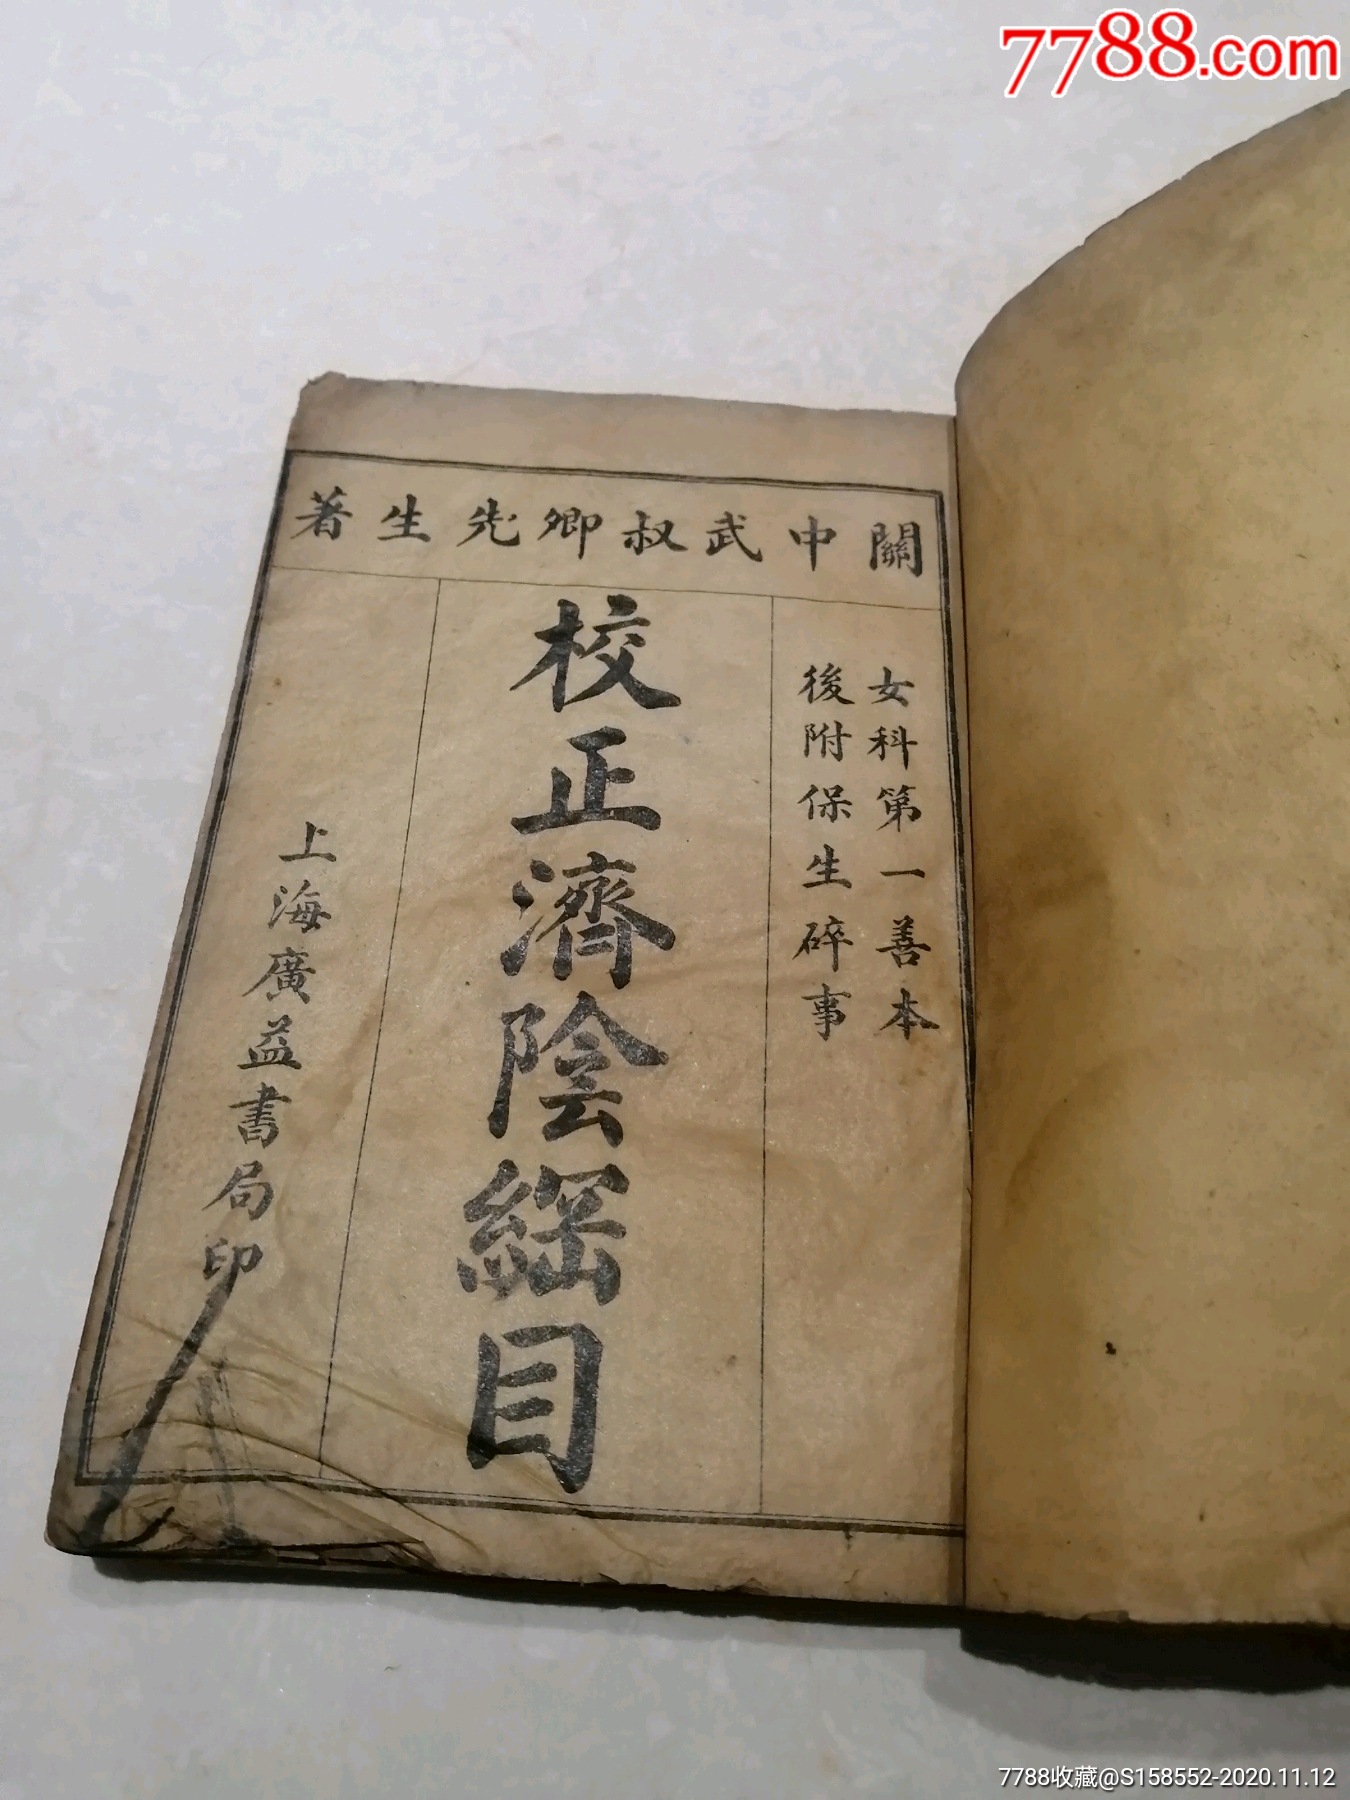 7788.com
關中武叔卿先生著
女科第一善本
後附保生碎事
校正濟陰綱目
上海廣益書局印
7788收藏@S158552-2020.11.12